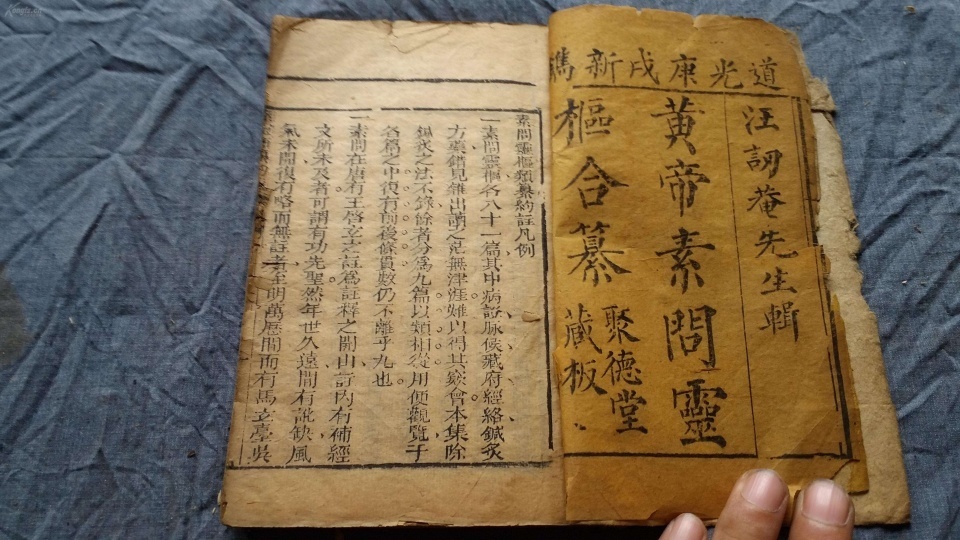 道光庚戌新鐫
汪訒菴先生輯
黃帝素問靈
樞合纂
聚德堂
藏板
素問靈樞類纂約註凡例
一素問靈樞各八十一篇其中病證脉候藏府經絡鍼灸
方藥錯見雜出讀之茫無津涯難以得其窾會本集除
鍼灸之法不錄餘者分爲九篇以類相從用便觀覽于
各篇之中復有前後條貫數仍不離乎九也
一素問在唐有王啓玄之註爲註釋之開山註內有補經
文所未及者可謂有功先聖然年世久遠間有訛缺風
氣未開復有略而無註者至明萬曆間而有馬玄臺吳